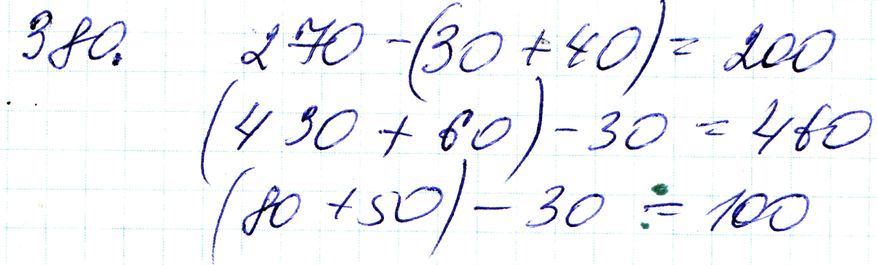 380. 270-(30+40)=200
(430+60)-30=460
(80+50)-30=100